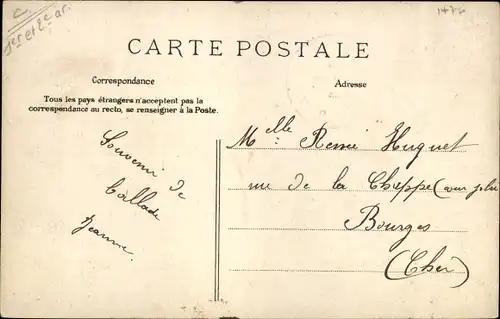 1er et 2e ar
CARTE POSTALE
Correspondance
Adresse
Tous les pays étrangers n'acceptent pas la
correspondance au recto, se renseigner à la Poste.
Souvenir
de
Jeanne
Melle Renée Huguet
rue de la Chappe (
Bourges
(Cher)